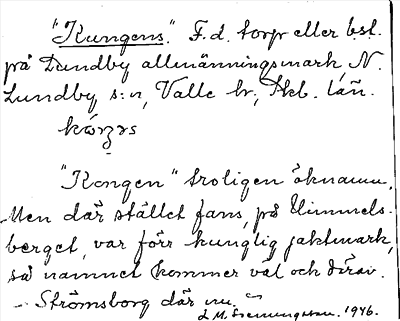 "Kungens". F.d. torp eller bst.
på Lundby allmänningsmark, N.
Lundby s:n, Valle hr, Skb. län.
"Kongen" troligen öknamn.
Men där stället fans, på Himmels-
berget, var förr kunglig jaktmark,
så namnet kommer väl och därav.
- Strömsborg där nu. -
L M. Svenungsson. 1946.